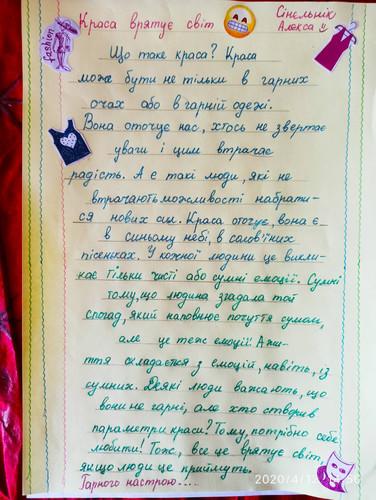 Краса врятує світ
Сінельнік
Алекса
fashion
Що таке краса? Краса
може бути не тільки в гарних
очах або в гарній одежі.
Вона оточує нас, хтось не звертає
уваги і цим втрачає
радість. А є такі люди, які не
втрачають можливості набрати-
ся нових сил. Краса оточує, вона є
в синьому небі, в солов'їних
піснях. У кожної людини це викли-
кає тільки чисті або сумні емоції. Сумні
тому, що людина згадала той
спогад, який наповнює почуття сумом,
але це теж емоції. А жи-
ття складається з емоцій, навіть, із
сумних. Деякі люди вважають, що
вони не гарні, але хто створив
параметри краси? Тому, потрібно себе
любити! Тож, все це врятує світ,
якщо люди це приймуть.
Гарного настрою....